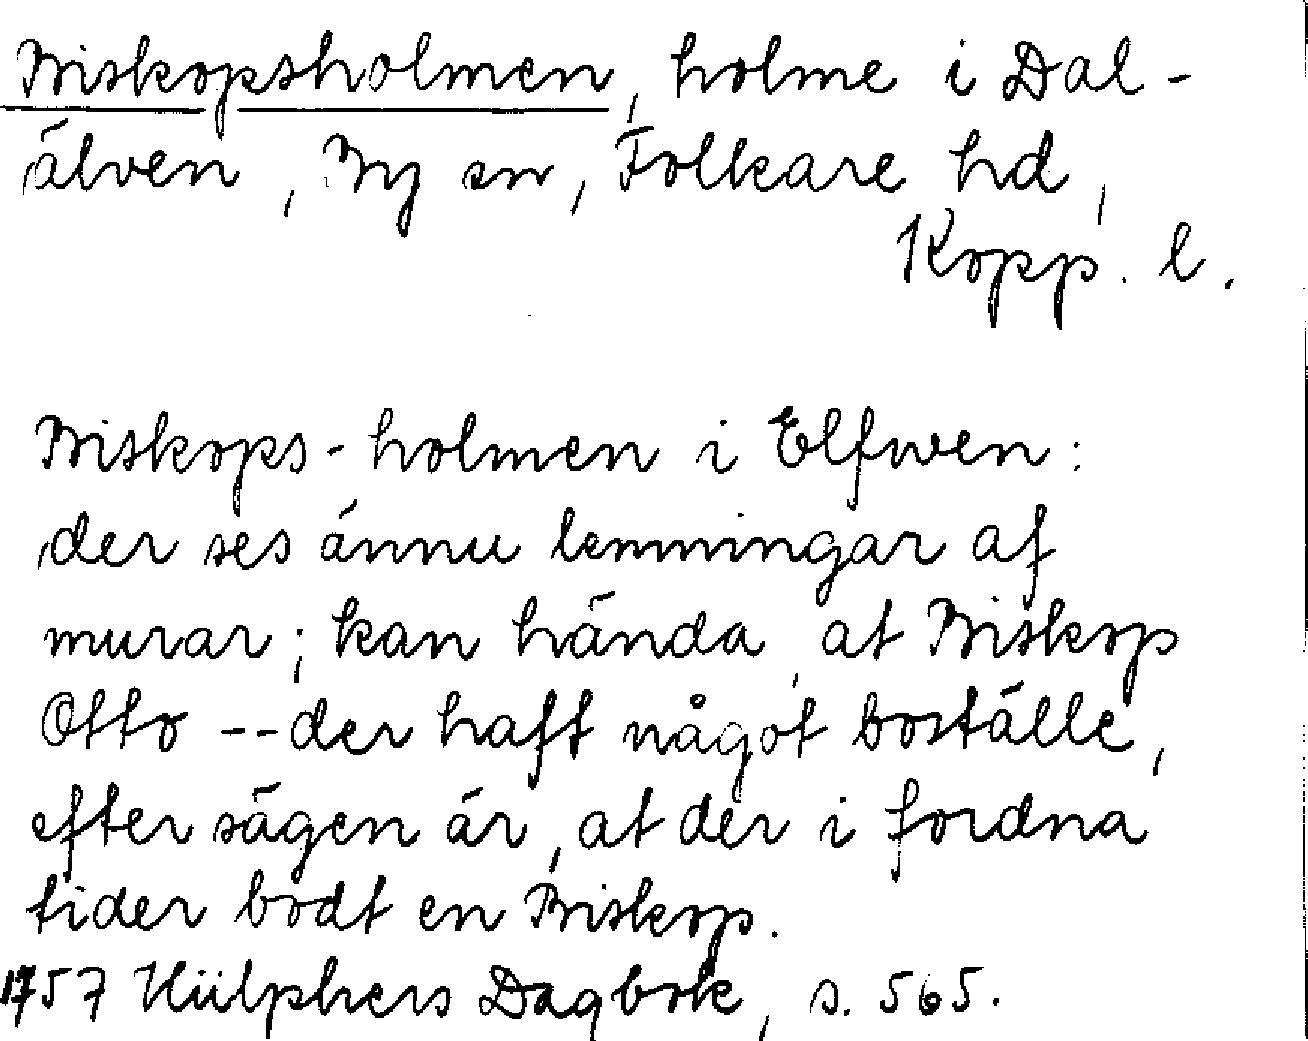 Biskopsholmen, holme i Dal-
älven, By sn, Folkare hd,
Kopp. l.
Biskops-holmen i Elfwen:
der ses ännu lemningar af
murar; kan hända, at Biskop
Otto -- der haft något boställe,
efter sägen är, at der i fordna
tider bodt en Biskop.
1757 Hülphers Dagbok, s. 565.